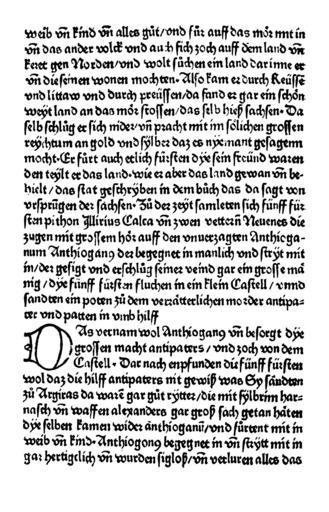 weib vn̄ kind vn̄ alles gůt/vnd für auff das mör mit in
vn̄ das ander volck vnd auch sich zoch auff dem land vn̄
keret gen Norden/vnd wolt sůchen ein land dar inne er
vn̄ die seinen wonen mochten· Also kam er durch Reüsse
vnd littaw vnd durch preüssen/da fand er gar ein schön
weyt land an das mör stossen/das selb hieß sachsen· Da
selb schlůg er sich nider/vn̄ pracht mit im sölichen grossen
reychtum an gold vnd sylber daz es nyemant gesagenn
mocht·Er fürt auch etlich fürsten dye sein freünd waren
den teylt er das land·wie er aber das land gewan vn̄ be⸗
hielt/das stat geschryben in dem bůch das da sagt von
vrsprügen der sachsen· Zů der zeyt samleten sich fünff für
sten pithon Illirius Calca vn̄ zwen vettern Neuenes die
zugen mit grossem hör auff den vnuerzagten Anthioga⸗
num Anthiogang der begegnet in manlich vnd stryt mit
in/der gesigt vnd erschlůg seiner veind gar ein grosse mā
nig/dye fünff fürsten fluchen in ein klein Castell/vnnd
sandten ein poten zů dem verrätterlichen morder antipa⸗
ter vnd patten in vmb hilff
DAs vernam wol Anthiogang vn̄ besorgt dye
grossen macht antipaters/vnd zoch von dem
Castell· Dar nach enpfunden die fünff fürsten
wol daz die hilff antipaters nit gewiß was Sy sandten
zů Argiras da warē gar gůt rytter/die mit sylbrim har⸗
nasch vn̄ waffen alexanders gar groß sach getan häten
dye selben kamen wider anthioganū/vnd fürtent mit in
weib vn̄ kind· Anthiogong begegnet in vn̄ strytt mit in
gar hertigclich vn̄ wurden sigloß/vn̄ verluren alles das